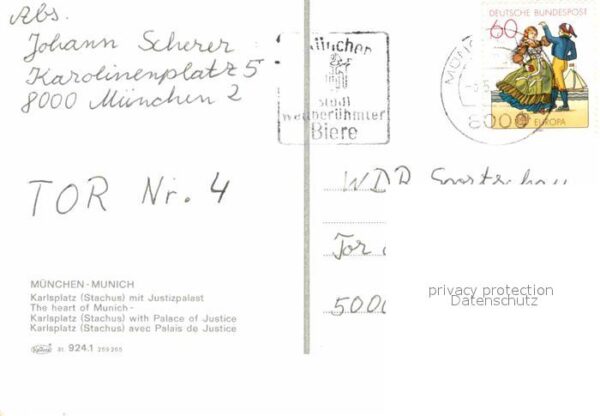 Abs.
Johann Scherer
Karolinenplatz 5
8000 München 2
TOR Nr. 4
MÜNCHEN - MUNICH
Karlsplatz (Stachus) mit Justizpalast
The heart of Munich -
Karlsplatz (Stachus) with Palace of Justice
Karlsplatz (Stachus) avec Palais de Justice
924.1
München
stadt
weltberühmter
Biere
DEUTSCHE BUNDESPOST
60
EUROPA
8000
WDR Sportschau
Tor
5000
privacy protection
Datenschutz